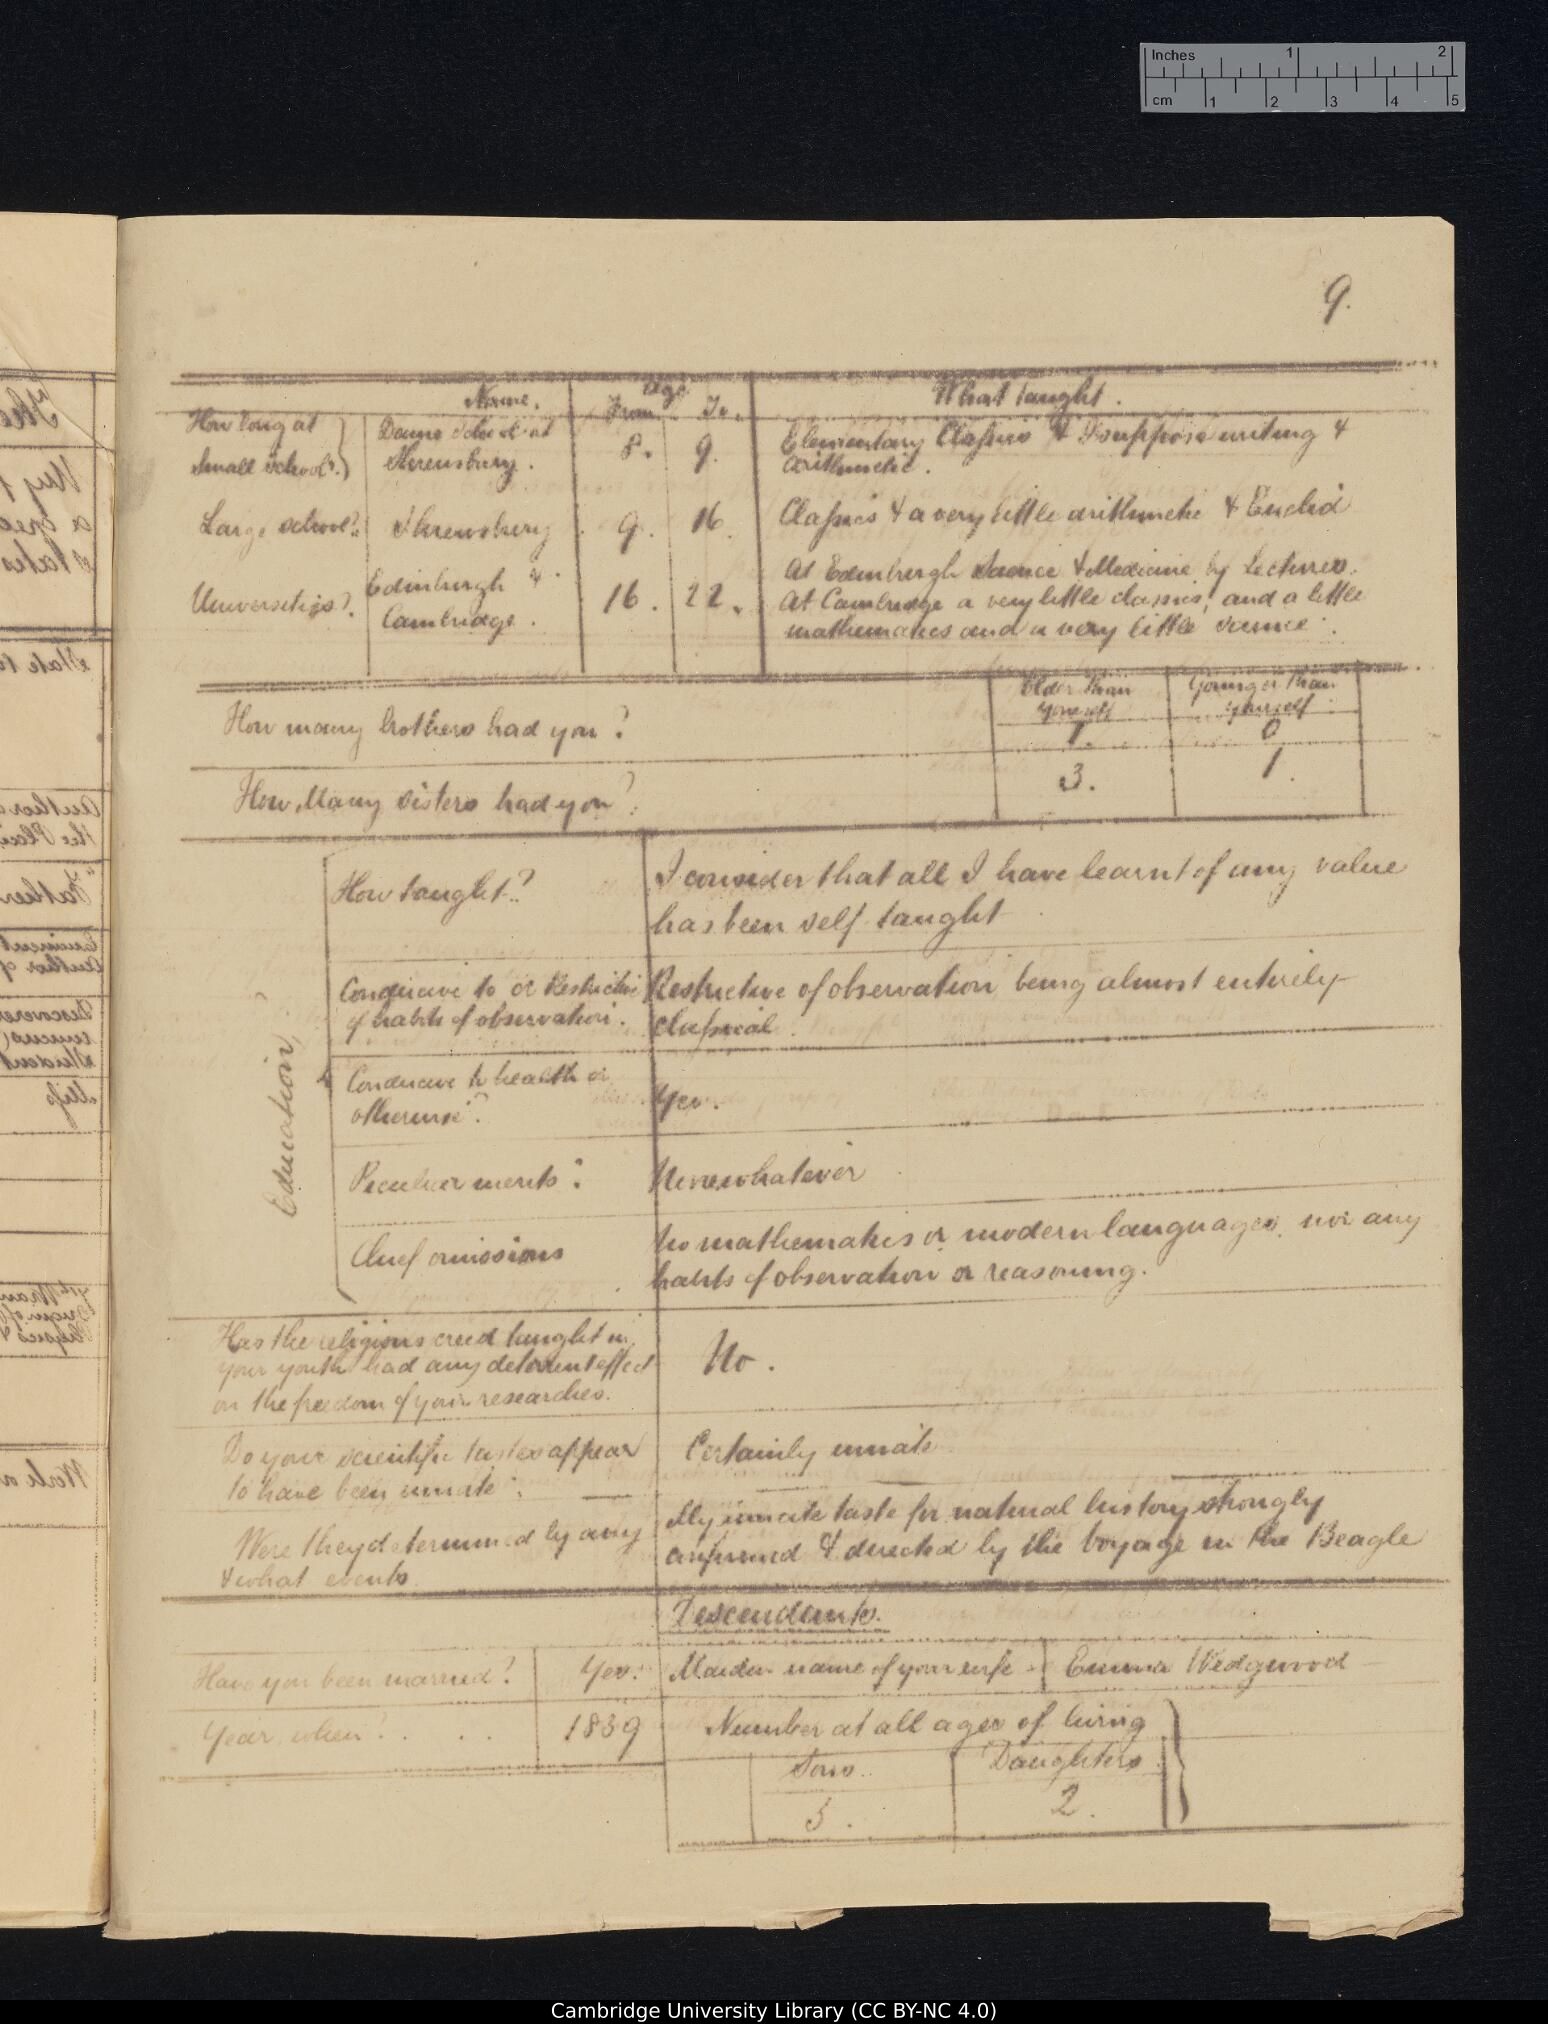 Inches 1 2
cm 1 2 3 4 5
9.
Name. Age What taught.
From To.
How long at
Small School?
Dame school at
Shrewsbury.
8. 9.
Elementary Classics & I suppose writing &
arithmetic.
Large school? Shrewsbury 9. 16.
Classics & a very little arithmetic & Euclid
Universities?
Edinburgh &
Cambridge.
16. 22.
At Edinburgh Science & Medicine by Lectures.
At Cambridge a very little classics, and a little
mathematics and a very little science.
Elder than
yourself
Younger than
yourself
How many brothers had you? 1. 0
How Many sisters had you? 3. 1.
Education
How taught?
I consider that all I have learnt of any value
has been self taught
Conducive to or Restrictive
of habits of observation.
Restrictive of observation being almost entirely
classical.
Conducive to health or
otherwise?
Yes.
Peculiar merits?
None whatever
Chief omissions
No mathematics or modern languages, nor any
habits of observation or reasoning.
Has the religious creed taught in
your youth had any deterrent effect
on the freedom of your researches.
No.
Do your scientific tastes appear
to have been innate?
Certainly innate
Were they determined by any
& what events
My innate taste for natural history strongly
confirmed & directed by the Voyage in the Beagle
Descendants.
Have you been married? Yes. Maiden name of your wife Emma Wedgwood
Year when? 1839
Number at all ages of living
Sons. Daughters
5. 2.
Cambridge University Library (CC BY-NC 4.0)